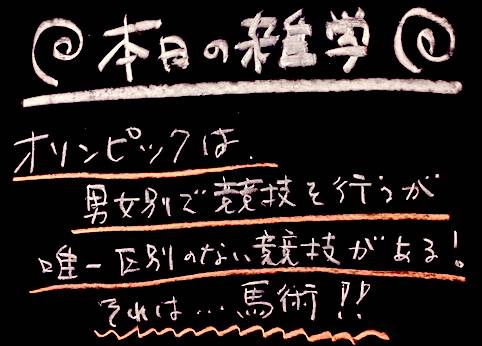 本日の雑学
オリンピックは、
男女別で競技を行うが
唯一区別のない競技がある!
それは…馬術!!